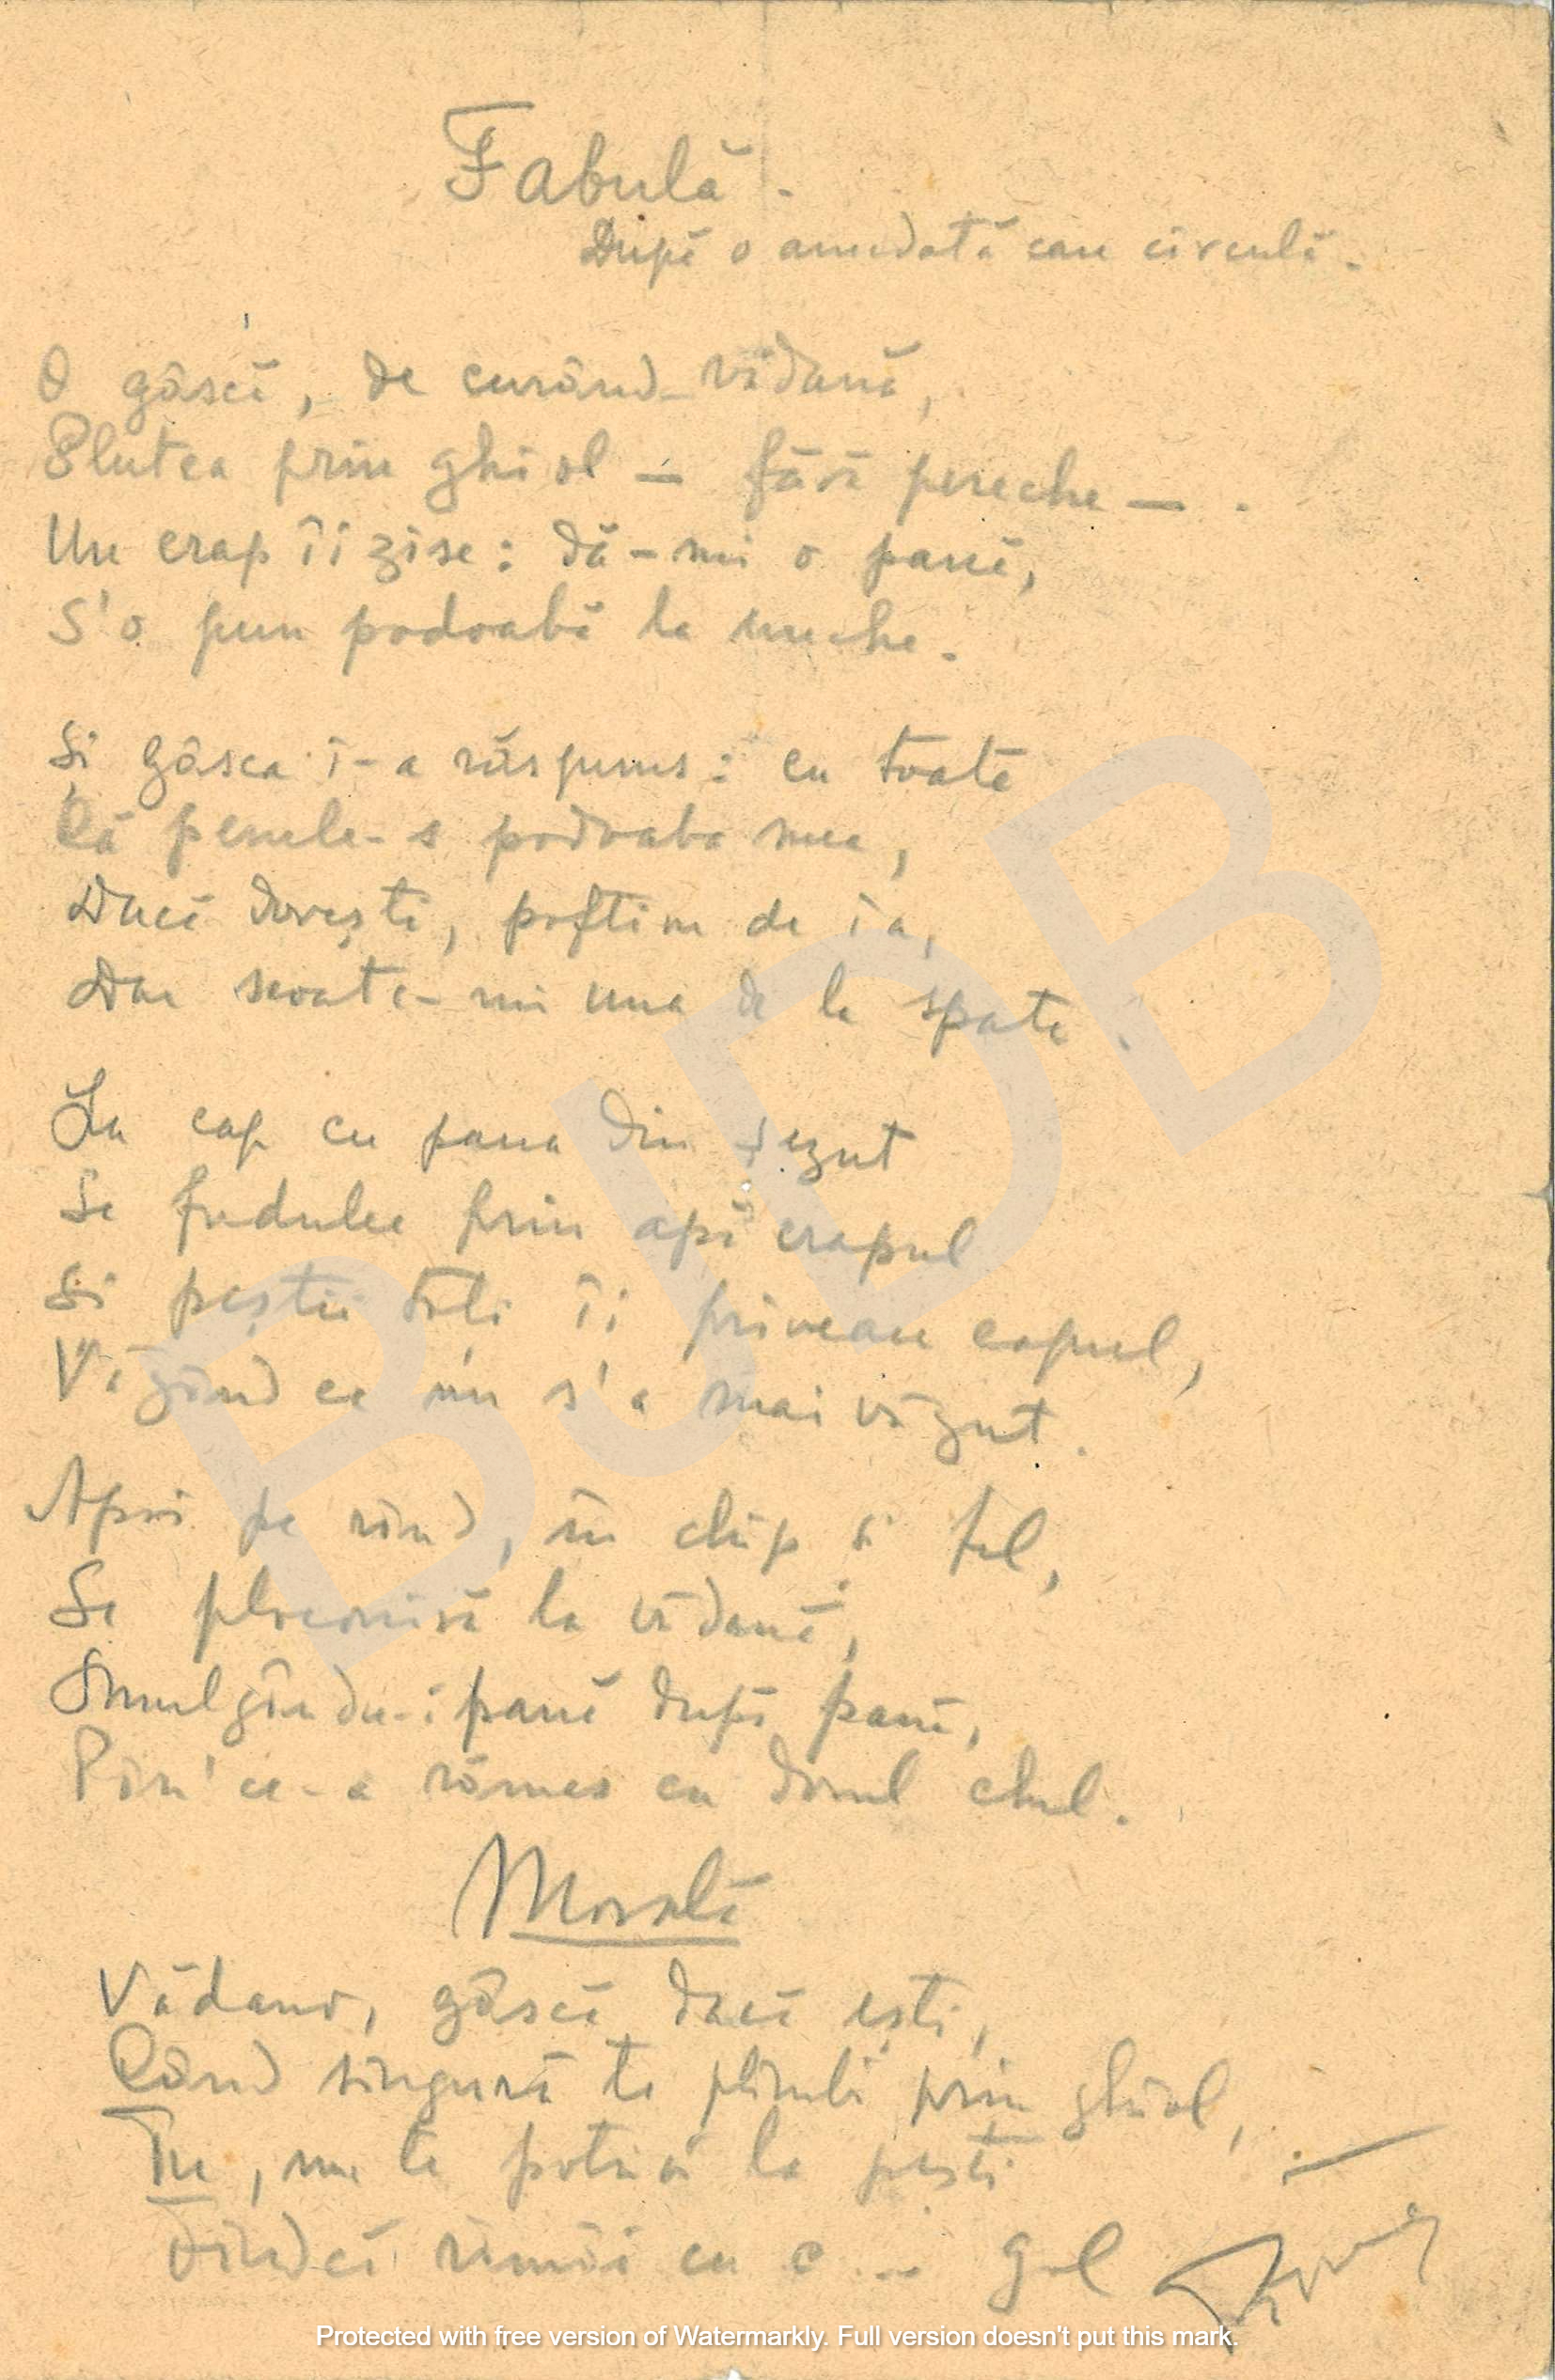 Fabulă.
După o anecdotă care circulă.
O gâscă, de curând vădană,
Plutea prin ghiol — fără pereche — .
Un crap îi zise: dă-mi o pană,
S'o pun podoabă la ureche.
Și gâsca i-a răspuns: cu toate
Că penele-s podoaba mea,
Dacă dorești, poftim de ia,
Dar scoate-mi una de la spate.
La cap cu pana din șezut
Se fudulea prin apă crapul
Și peștii toți îi priveau capul,
Văzând ce nu s'a mai văzut.
Apoi pe rînd, în chip și fel,
Se ploconiră la vădană,
Smulgîndu-i pană după pană,
Pîn' ce-a rămas cu dosul chel.
Morală
Vădano, gâscă dacă ești,
Când singură te plimbi prin ghiol,
Tu, nu te potrivi la pești
Fiindcă rămâi cu c... gol
BJDB
Protected with free version of Watermarkly. Full version doesn't put this mark.